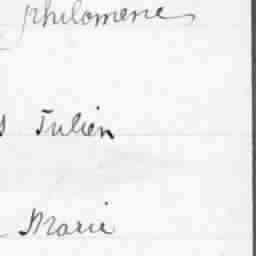 philomene
s Julien
Marie